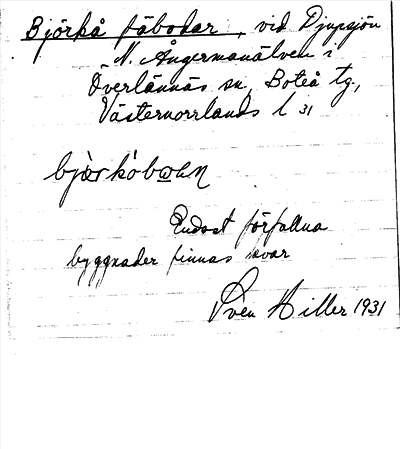 Björkå fäbodar, vid Djupsjön
N. Ångermanälven i
Överlännäs sn, Boteå tg,
Västernorrlands l 31
Endast förfallna
byggnader finnas kvar
Sven Hiller 1931